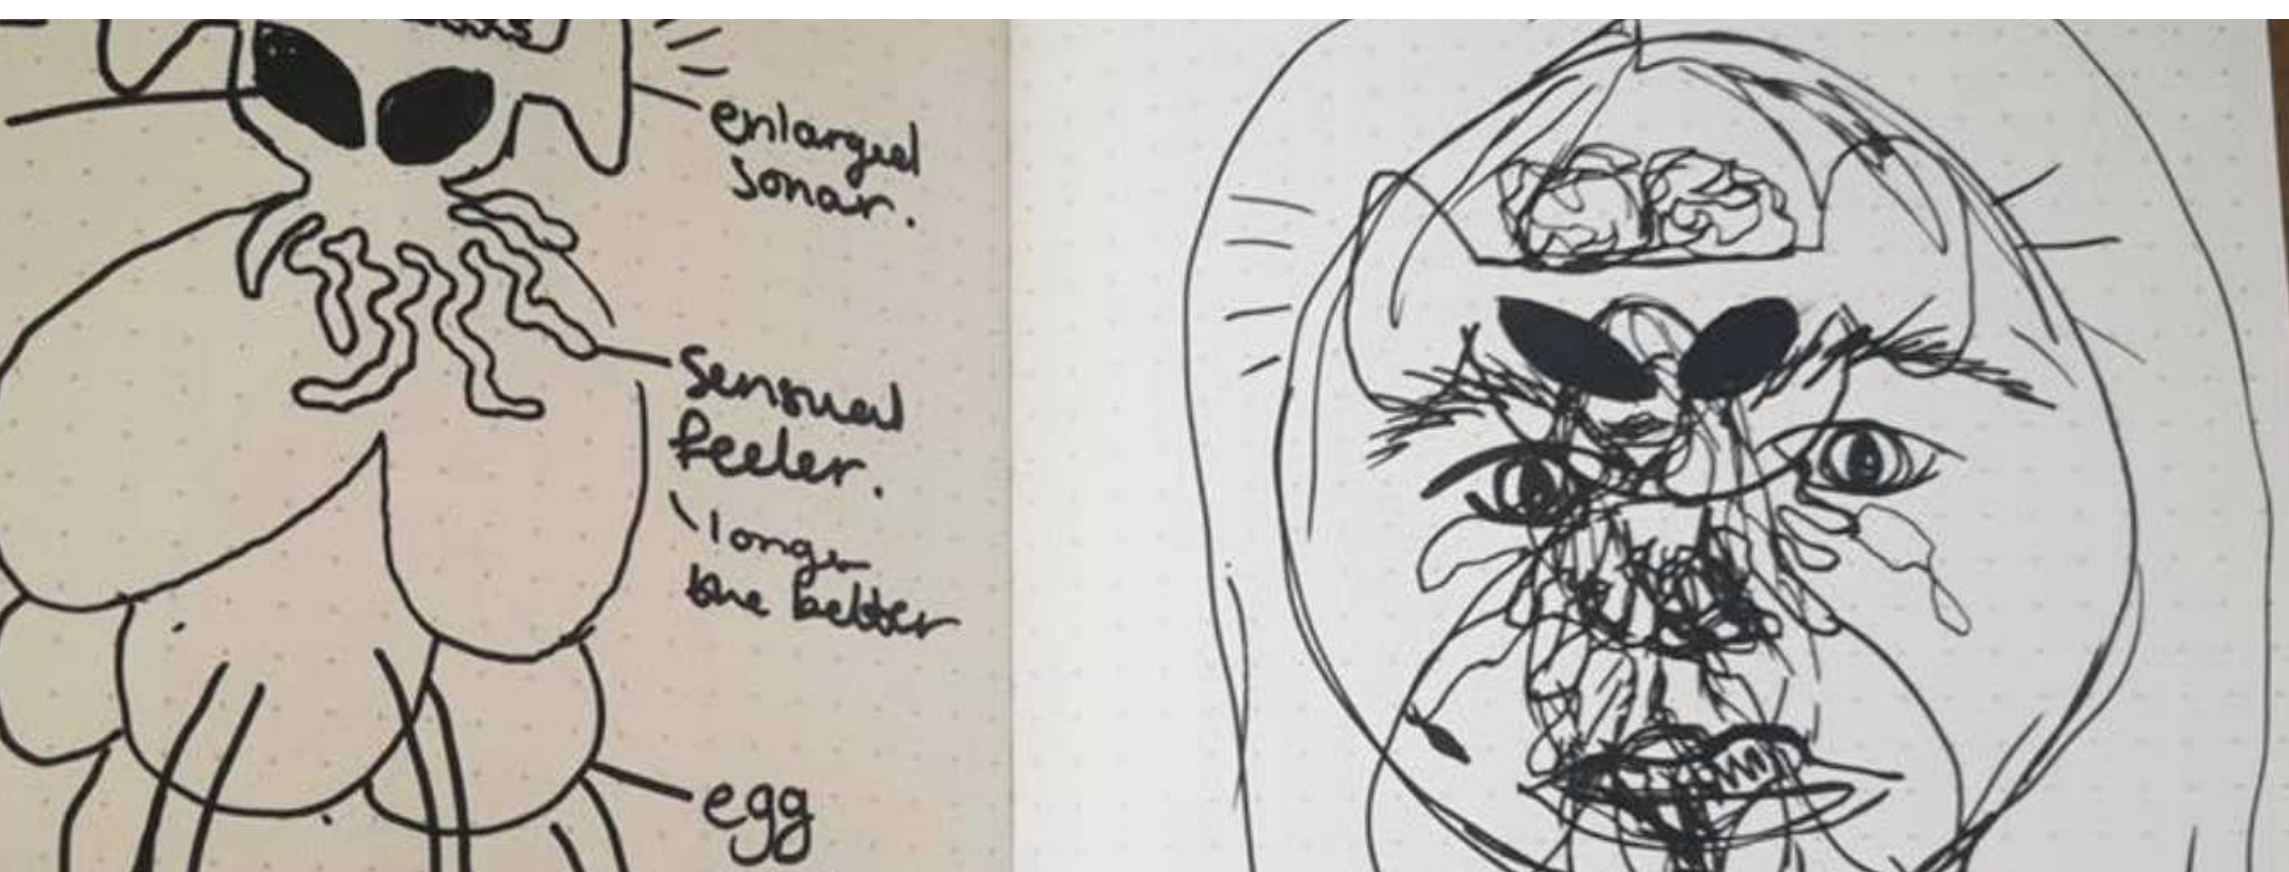 enlarged
sonar.
sensual
feeler.
longer
the better
egg